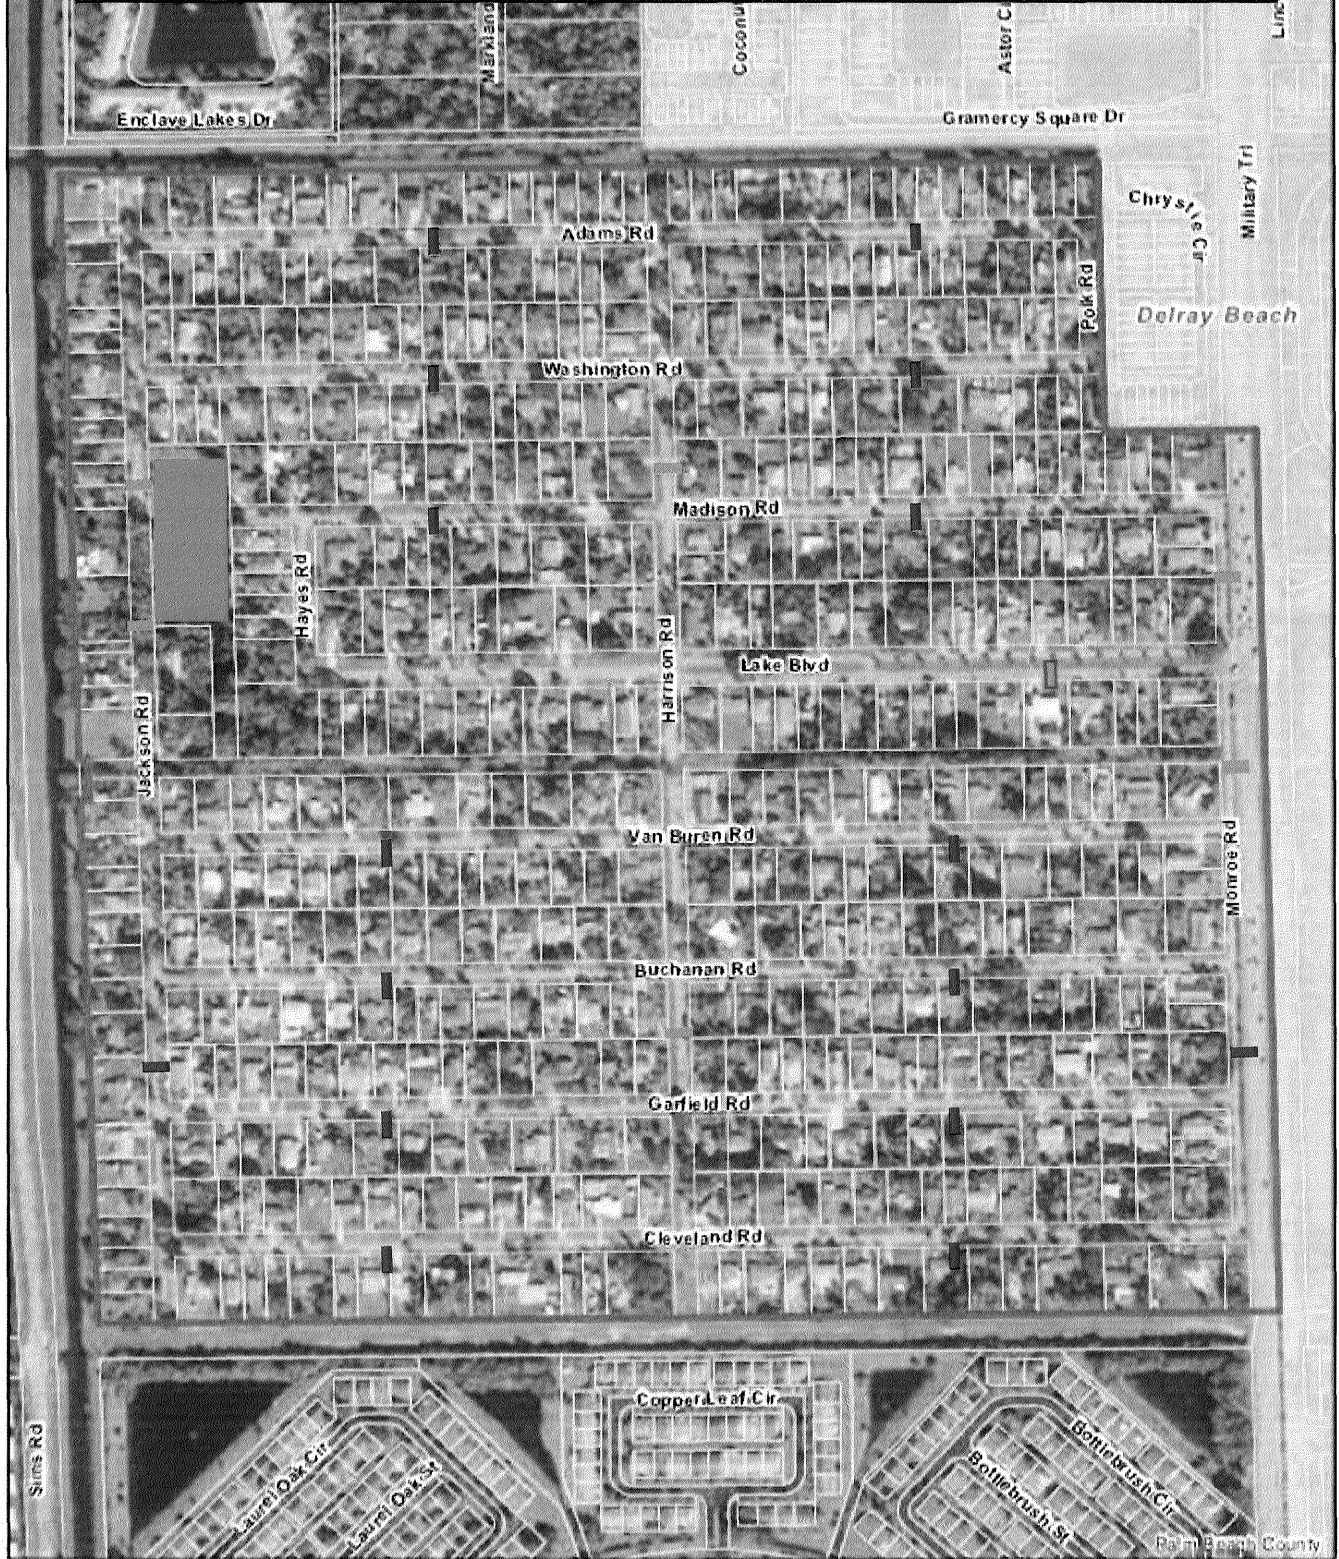 Markland
Coconu
Astor Ci
Linc
Enclave Lakes Dr
Gramercy Square Dr
Military Trl
Chrystie Cir
Adams Rd
Polk Rd
Delray Beach
Washington Rd
Madison Rd
Hayes Rd
Harrison Rd
Lake Blvd
Jackson Rd
Van Buren Rd
Monroe Rd
Buchanan Rd
Garfield Rd
Cleveland Rd
Copper Leaf Cir
Sims Rd
Laurel Oak Cir
Laurel Oak St
Bottlebrush Cir
Bottlebrush St
Palm Beach County